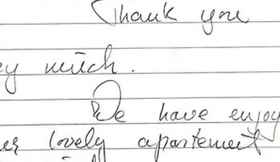 Thank you
ey much.
We have enjoy
er lovely apartement